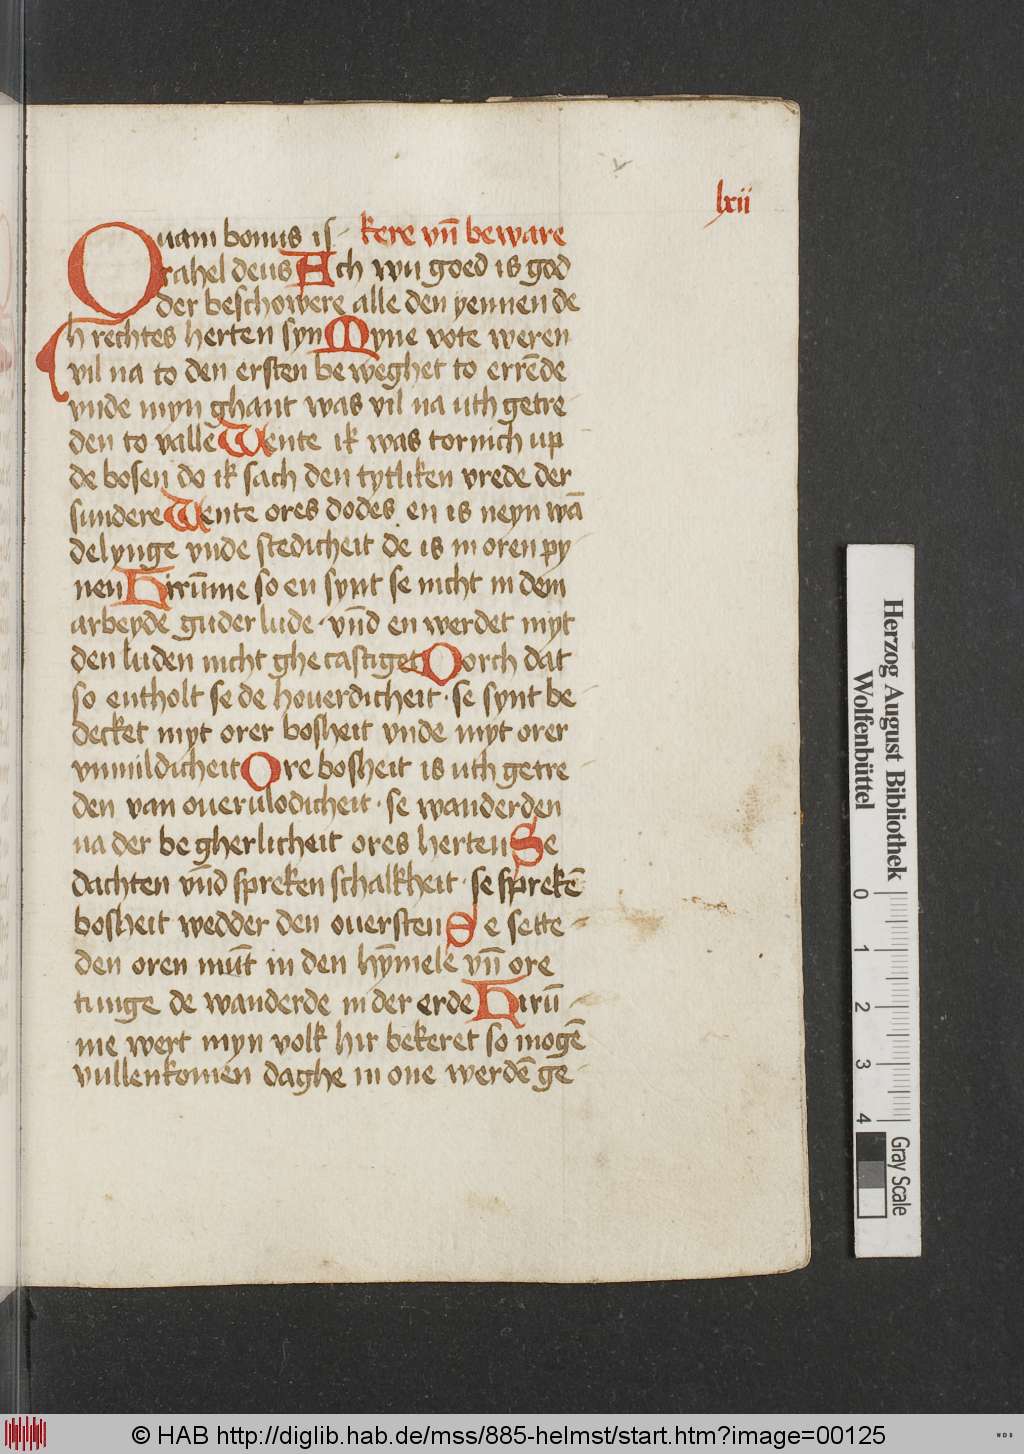 lxii
Quam bonus is- kere vn̄ beware
rahel deus Ach wu goed is god
der beschowere alle den yennen de
h rechtes herten syn Myne vote weren
vil na to den ersten beweghet to errēde
vnde myn ghant was vil na uth getre-
den to valle Wente ik was tornich up
de bosen do ik sach den tytliken vrede der
sundere Wente ores dodes en is neyn wā
delynge vnde stedicheit de is in oren py-
nen Hirūme so en synt se nicht in dem
arbeyde guder lude · vn̄d en werdet myt
den luden nicht ghecastiget Dorch dat
so entholt se de houerdicheit · se synt be-
decket myt orer bosheit vnde myt orer
vnmildicheit Ore bosheit is uth getre-
den van ouerulodicheit · se wanderden
na der begherlicheit ores herten Se
dachten vn̄d spreken schalkheit · se sprekē
bosheit wedder den ouersten Se sette-
den oren mūt in den hȳmele vn̄ ore
tunge de wanderde in der erde Hirū-
me wert myn volk hir bekeret so mogē
vullenkomen daghe in one werdē ge-
Herzog August Bibliothek
Wolfenbüttel
0 1 2 3 4
Gray Scale
© HAB http://diglib.hab.de/mss/885-helmst/start.htm?image=00125